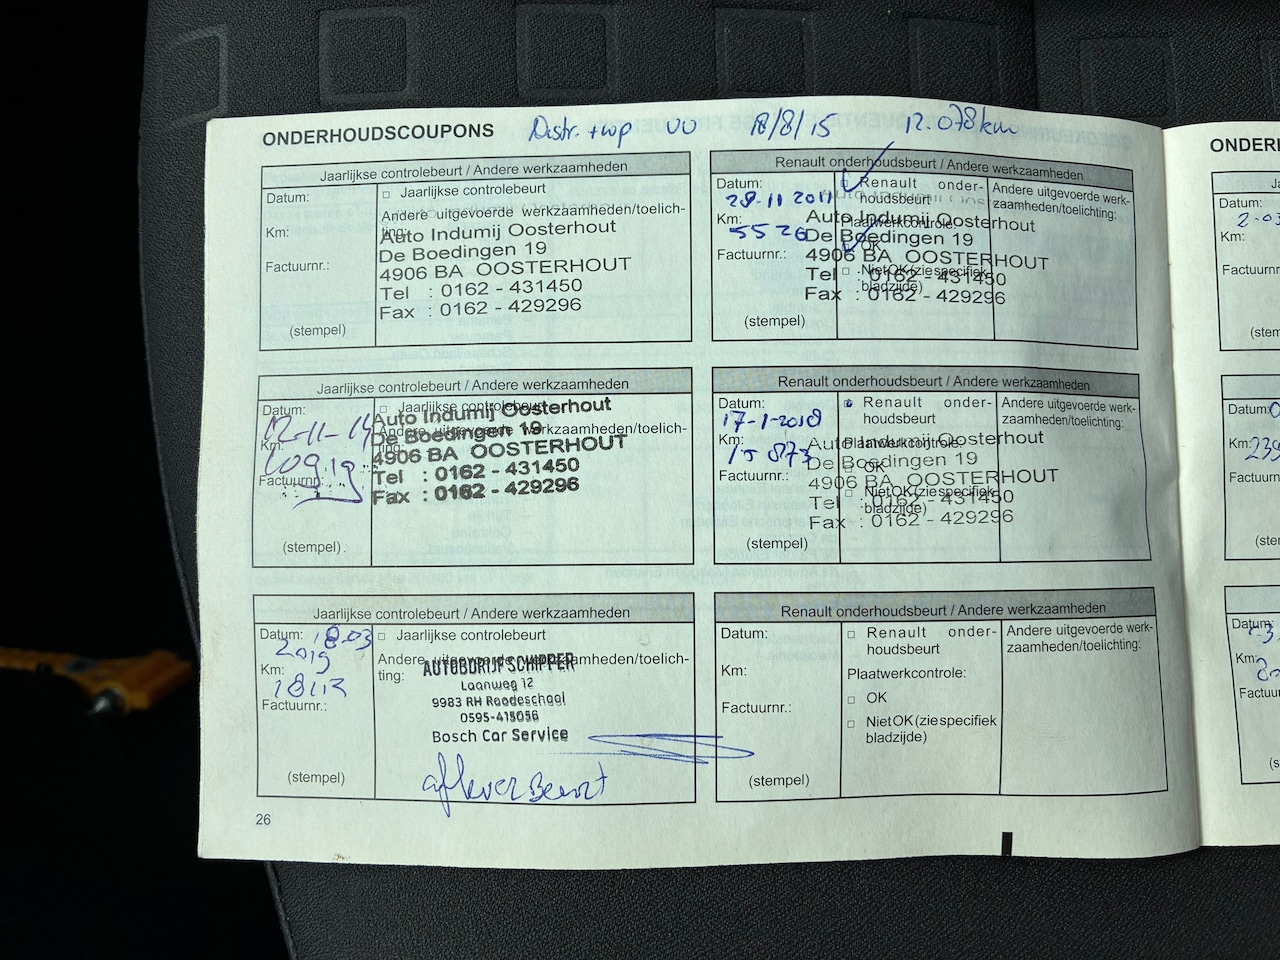 ONDERHOUDSCOUPONS
Distr. + wp VV 18/8/15 12.078km
Jaarlijkse controlebeurt / Andere werkzaamheden
Datum:
Km:
Factuurnr.:
(stempel)
□ Jaarlijkse controlebeurt
Andere uitgevoerde werkzaamheden/toelich-
ting:
Auto Indumij Oosterhout
De Boedingen 19
4906 BA OOSTERHOUT
Tel : 0162 - 431450
Fax : 0162 - 429296
Renault onderhoudsbeurt / Andere werkzaamheden
Datum:
29-11 2011
Km:
5526
Factuurnr.:
(stempel)
□ Renault onder-
houdsbeurt
Plaatwerkcontrole:
□ OK
□ Niet OK (zie specifiek
bladzijde)
Andere uitgevoerde werk-
zaamheden/toelichting:
Auto Indumij Oosterhout
De Boedingen 19
4906 BA OOSTERHOUT
Tel : 0162 - 431450
Fax : 0162 - 429296
Jaarlijkse controlebeurt / Andere werkzaamheden
Datum:
12-11-14
Km:
10919
Factuurnr.:
(stempel)
□ Jaarlijkse controlebeurt
Andere uitgevoerde werkzaamheden/toelich-
ting:
Auto Indumij Oosterhout
De Boedingen 19
4906 BA OOSTERHOUT
Tel : 0162 - 431450
Fax : 0162 - 429296
Renault onderhoudsbeurt / Andere werkzaamheden
Datum:
17-1-2018
Km:
15873
Factuurnr.:
(stempel)
□ Renault onder-
houdsbeurt
Plaatwerkcontrole:
□ OK
□ Niet OK (zie specifiek
bladzijde)
Andere uitgevoerde werk-
zaamheden/toelichting:
Auto Indumij Oosterhout
De Boedingen 19
4906 BA OOSTERHOUT
Tel : 0162 - 431450
Fax : 0162 - 429296
Jaarlijkse controlebeurt / Andere werkzaamheden
Datum: 18-03
2019
Km:
Factuurnr.:
(stempel)
□ Jaarlijkse controlebeurt
Andere uitgevoerde werkzaamheden/toelich-
ting:
AUTOBDRIJF SCHIPPER
Laanweg 12
9983 RH Roodeschool
0595-415056
Bosch Car Service
afleverBeurt
Renault onderhoudsbeurt / Andere werkzaamheden
Datum:
Km:
Factuurnr.:
(stempel)
□ Renault onder-
houdsbeurt
Plaatwerkcontrole:
□ OK
□ Niet OK (zie specifiek
bladzijde)
Andere uitgevoerde werk-
zaamheden/toelichting:
26
Datum:
Km:
Datum:
Km:
Datum:
Km: